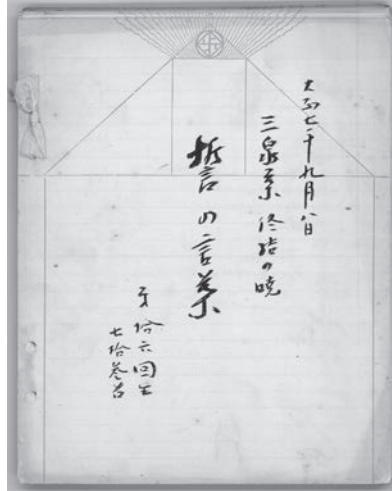 大正七年九月八日
三泉寮終結の暁
誓の言葉
第拾六回生
七拾参名